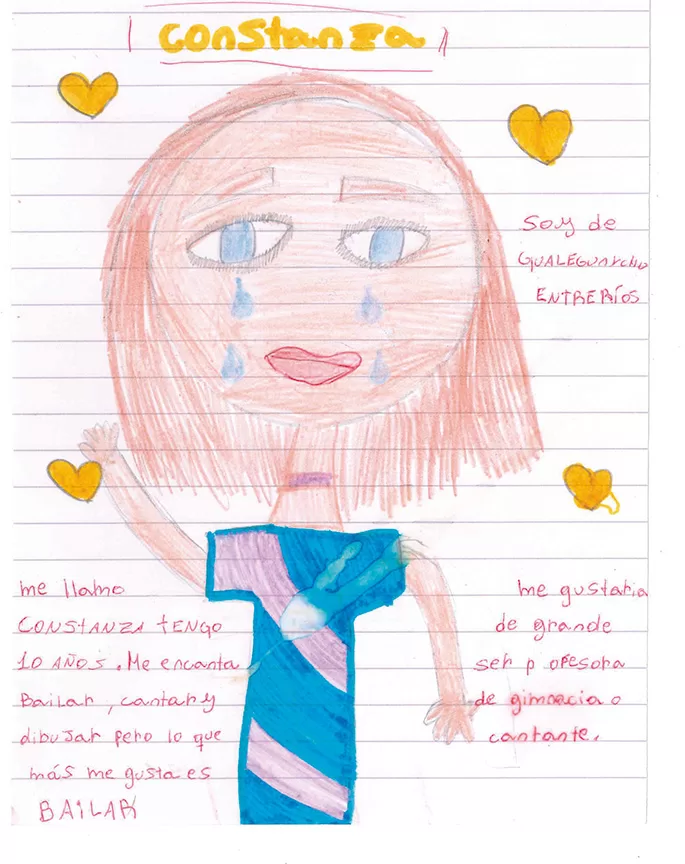 constanza
Soy de
GUALEGUAYchú
ENTRERÍOS
me llamo
CONSTANZA tENGO
10 AÑOS. Me encanta
BaiLar, cantar y
dibujar pero lo que
más me gusta es
BAILAR
Me gustaria
de grande
ser p ofesora
de gimnacia o
cantante.